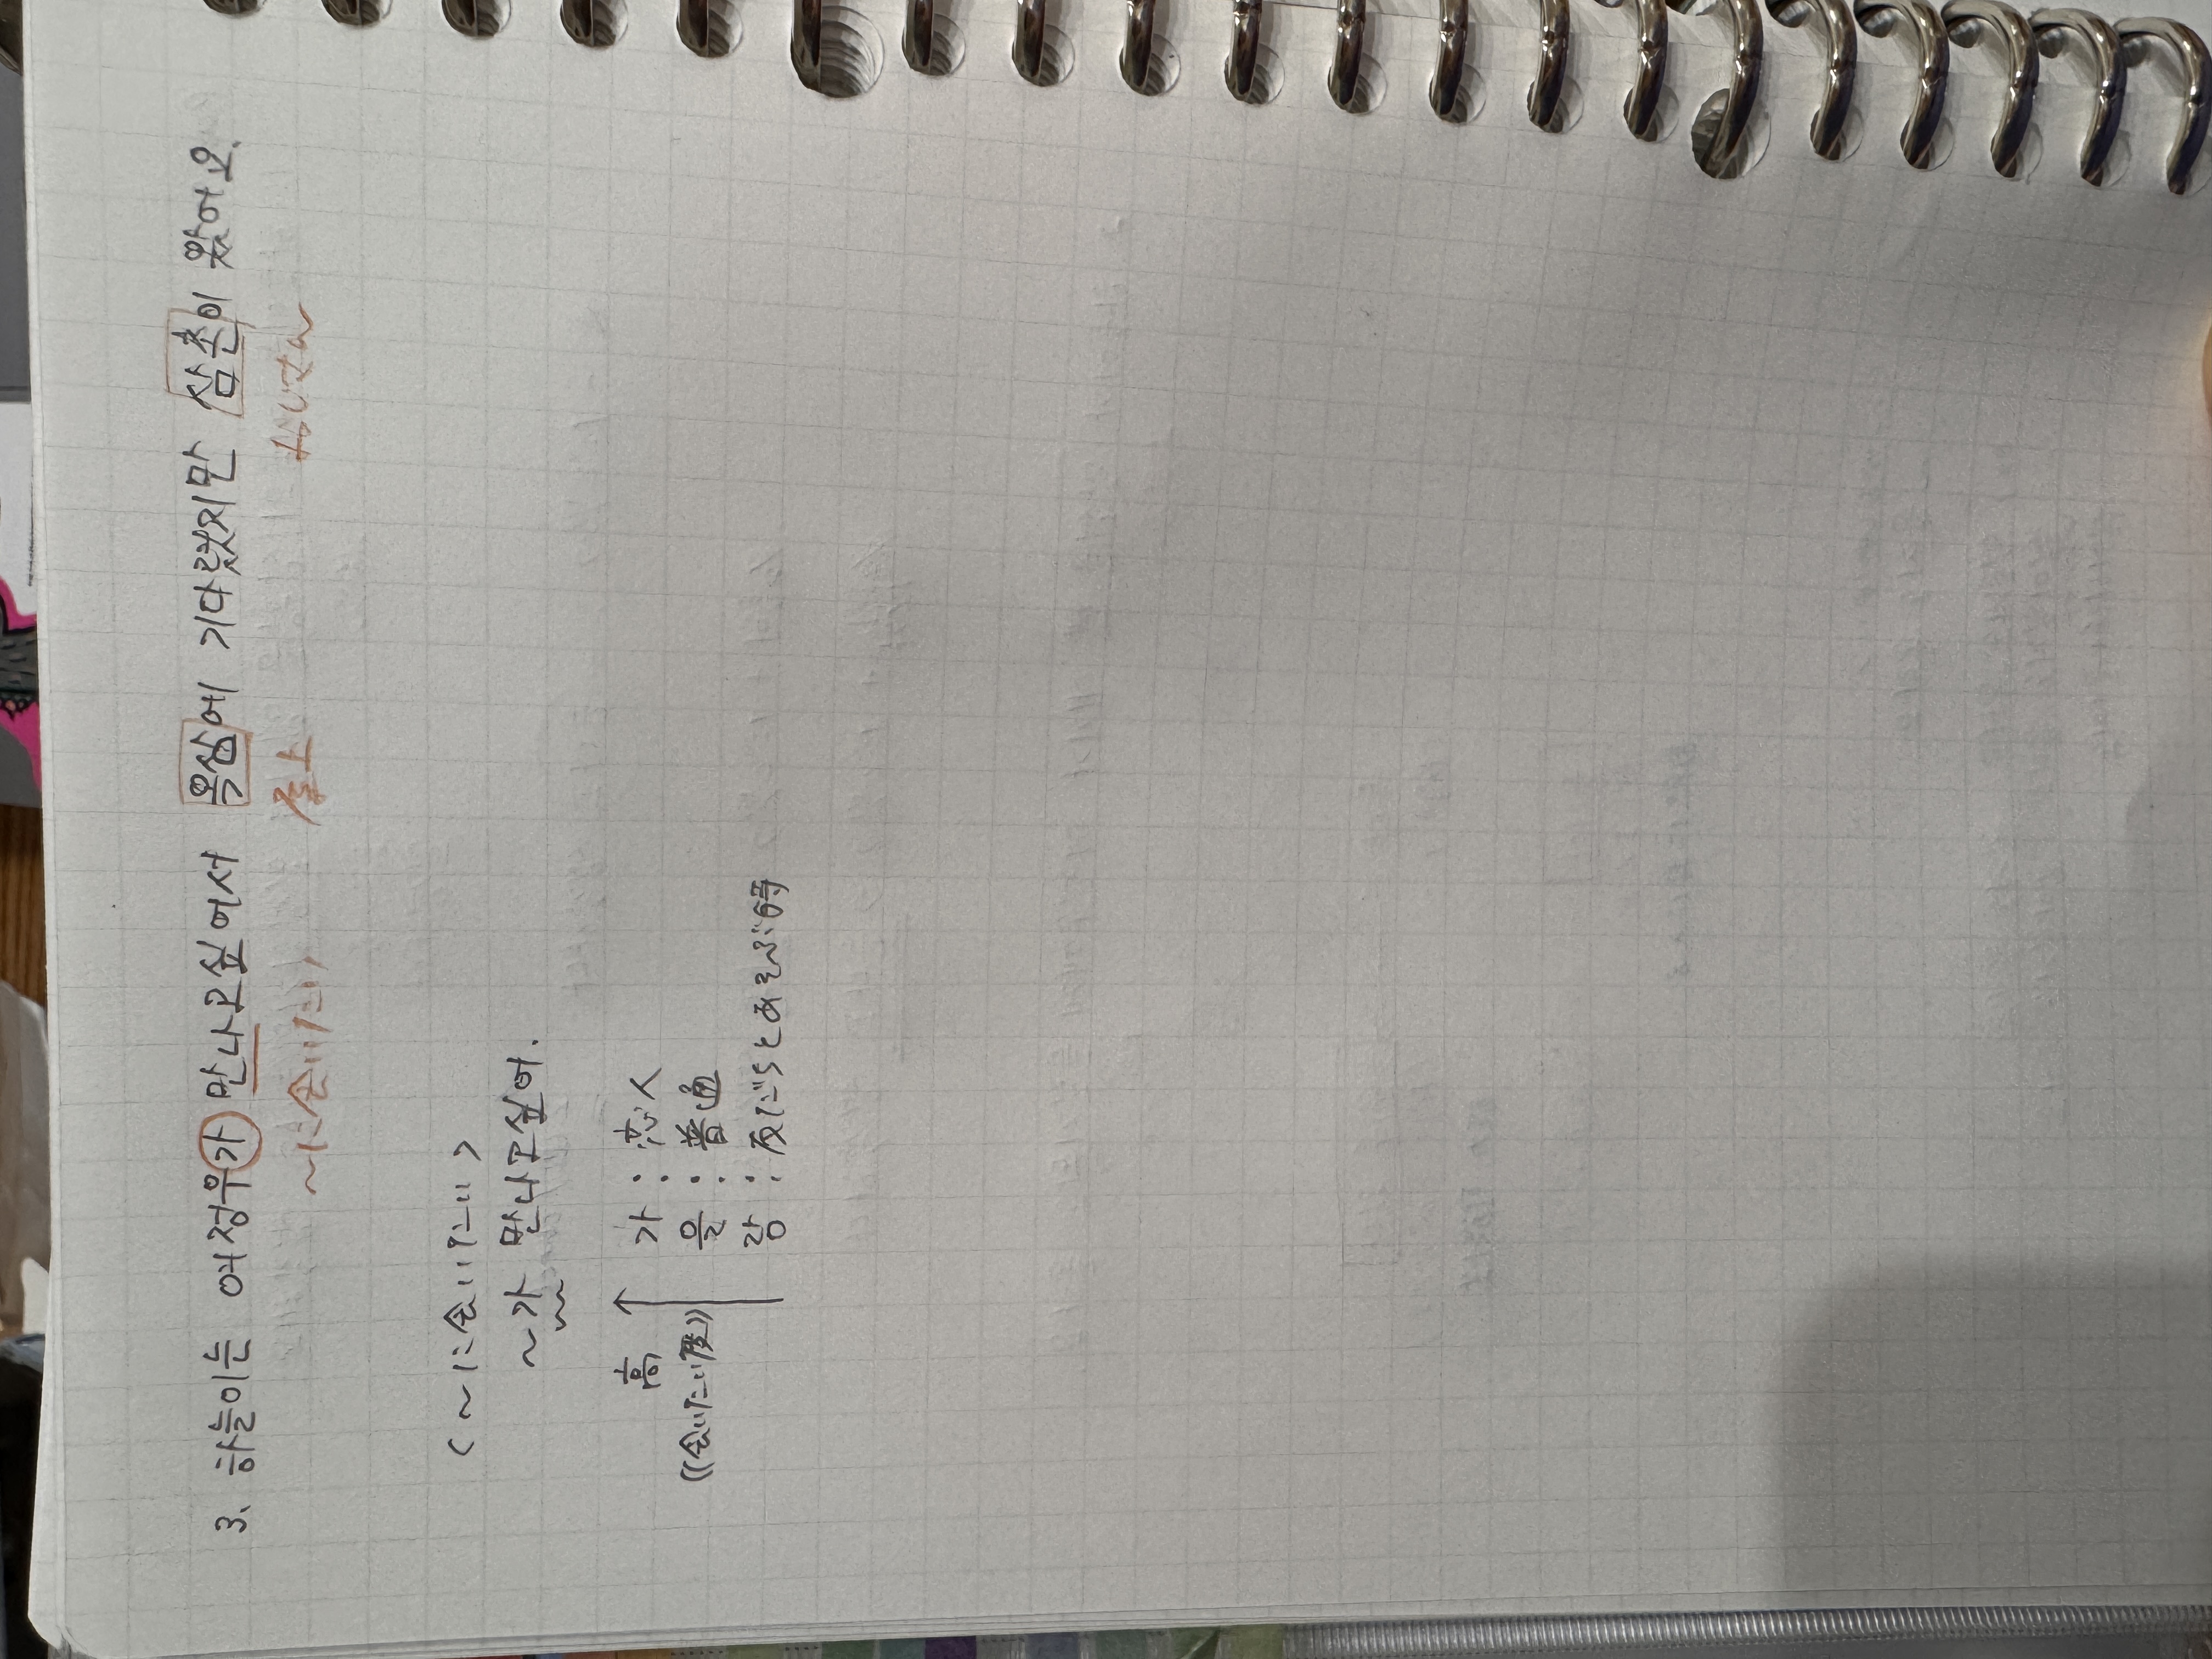 3. 하늘이는 여정우가 만나고싶어서 옥삼에 기다렸지만 삼촌이 왔어요.
~に会いたい 屋上 おじさん
<~に会いたい>
~가 만나고싶어.
高 가 : 恋人
((会いたい度)) 을 : 普通
랑 : 友だちとあそぶ時